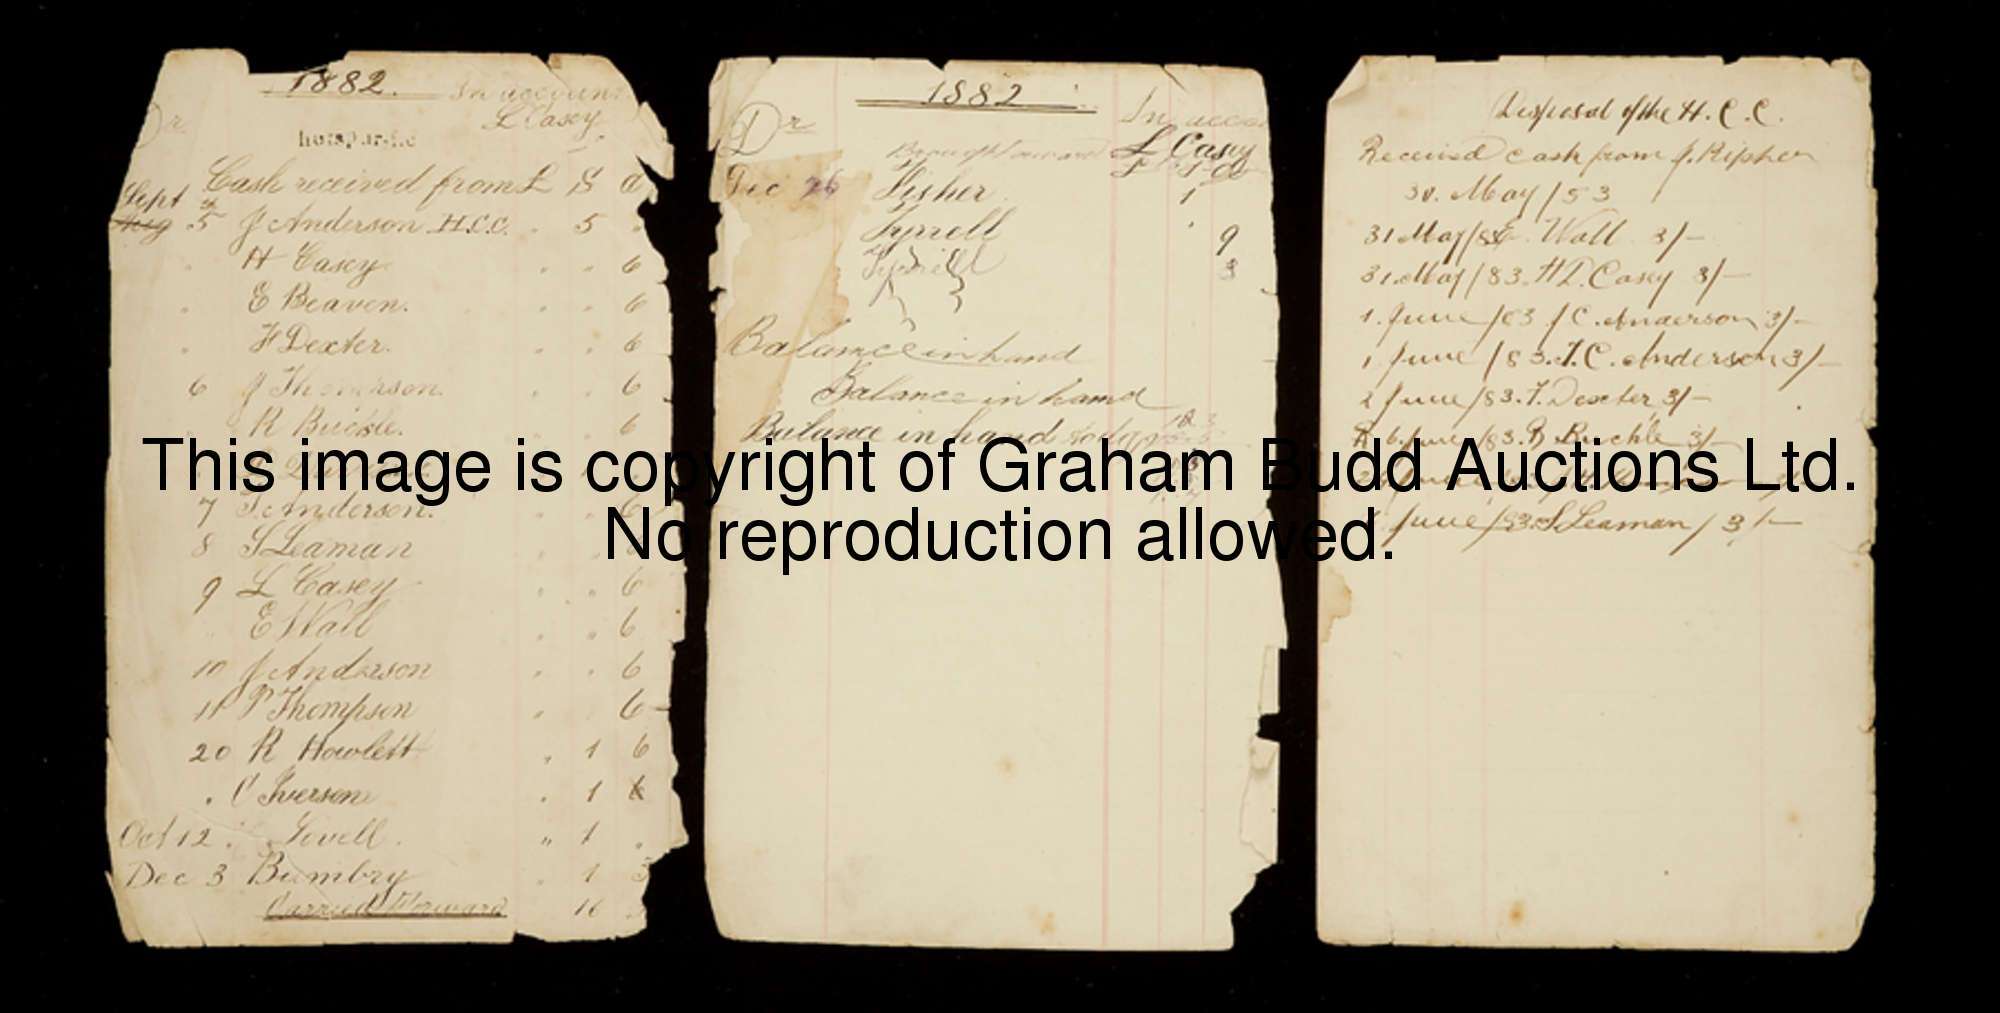 1882. In account
Dr. L Casey
hotspur f.c
Cash received from £ S d
Sept
Aug 5th J Anderson H.C.C. 5
H Casey 6
E Beaven. 6
F Dexter. 6
6 J Thompson. 6
R Buckle. 6
7 T. Anderson. 6
8 S Leaman
9 L Casey 6
E Wall 6
10 J Anderson 6
11 P Thompson 6
20 R Howlett 1 6
C Iverson 1 6
Oct 12. Lovell. " 1
Dec 3 Bumbry 1 3
Carried Forward 16
1882
Dr In acco
Brought forward L Casey
£ S d
Dec 26 Fisher 1
Tyrrell 9
Tyrrell 3
Balance in hand
Balance in hand
Balance in hand today
Disposal of the H.C.C.
Received cash from J. Ripsher
30. May / 53
31 May/83 E. Wall 3/-
31. May/83. H.D. Casey 3/-
1. June /83 J C. Anderson 3/-
1 June /83. T. C. Anderson 3/-
2 June /83. F. Dexter 3/-
6. June /83. R Buckle 3/-
June /83. S Leaman / 3/-
This image is copyright of Graham Budd Auctions Ltd.
No reproduction allowed.